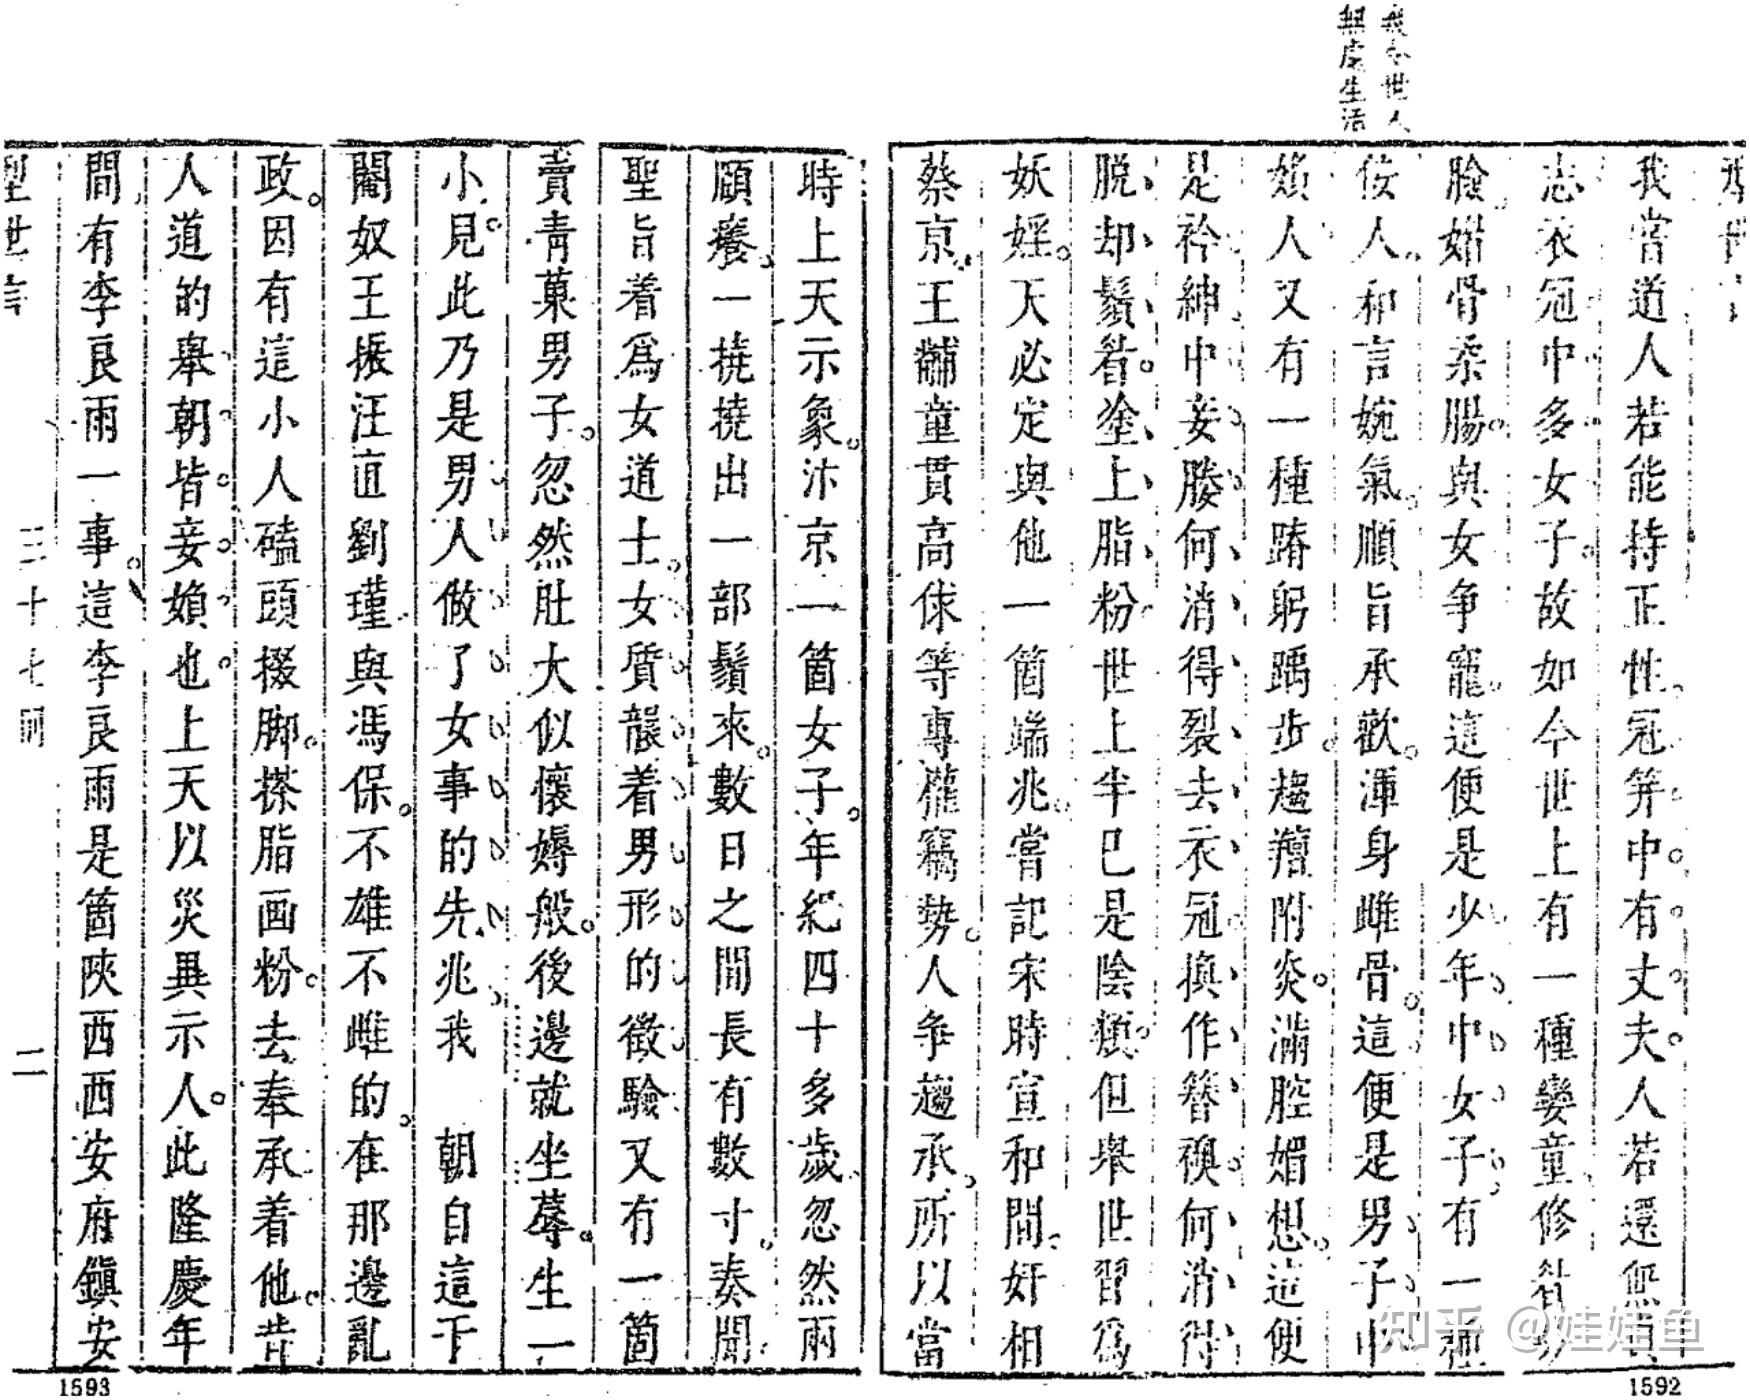 我令世人
無處生活
我嘗道人若能持正性冠笄中有丈夫人若還無貞
志衣冠中多女子故如今世上有一種孌童修眉
臉媚骨柔腸與女爭寵這便是少年中女子有一種
佞人和言婉氣順旨承歡渾身雌骨這便是男子中
媍人又有一種踌躬踽步趨羶附炎滿腔媚想這便
是衿紳中妾媵何消得裂去衣冠換作簪襖何消得
脱却鬚眉塗上脂粉世上半已是陰類但舉世習為
妖婬天必定與他一箇端兆嘗記宋時宣和間奸相
蔡京王黼童貫高俅等專權竊勢人争趨承所以當
時上天示象汴京一箇女子年紀四十多歲忽然兩
頤癢一撓撓出一部鬚來數日之間長有數寸奏聞
聖旨着爲女道士女質襲着男形的徵驗又有一箇
賣青菓男子忽然肚大似懷娠般後邊就坐蓐生一
小見此乃是男人做了女事的先兆我 朝自這干
閹奴王振汪直劉瑾與馮保不雄不雌的在那邊亂
政因有這小人磕頭掇脚搽脂画粉去奉承着他昔
人道的舉朝皆妾媍也上天以災異示人此隆慶年
間有李良雨一事這李良雨是箇陜西西安府鎭安
型世言
三十七回
二
1593
1592
知乎 @娃娃鱼